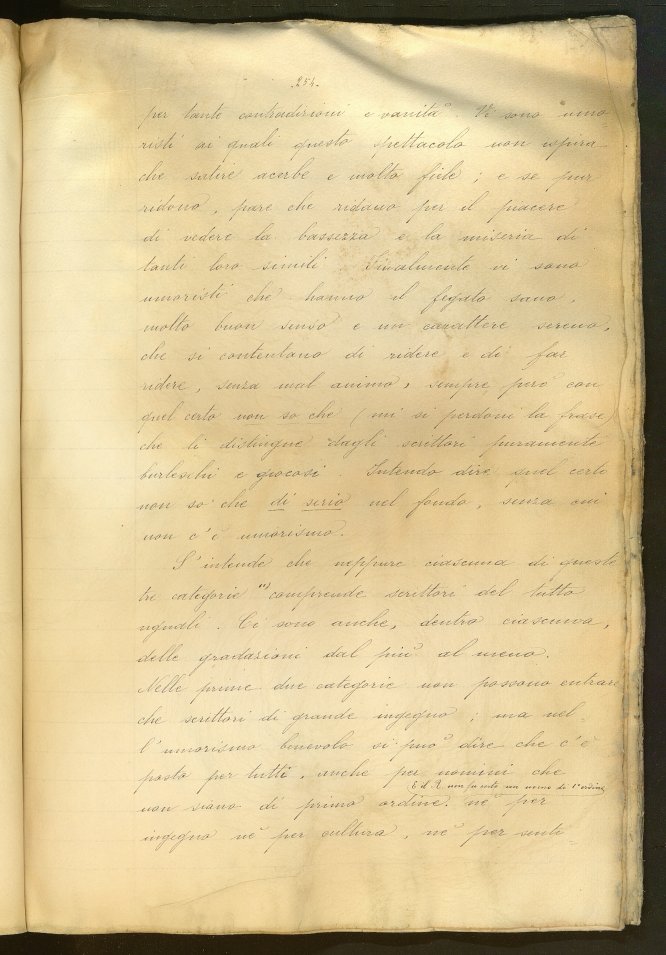 - 254 -
per tante contradizioni e vanità. Vi sono umo-
risti ai quali questo spettacolo non ispira
che satire acerbe e molto fiele; e se pur
ridono, pare che ridano per il piacere
di vedere la bassezza e la miseria di
tanti loro simili. Finalmente vi sono
umoristi che hanno il fegato sano,
molto buon senso e un carattere sereno,
che si contentano di ridere e di far
ridere, senza mal animo, sempre però con
quel certo non so che (mi si perdoni la frase)
che li distingue dagli scrittori puramente
burleschi e giocosi. Intendo dire quel certo
non so che di serio nel fondo, senza cui
non c'è umorismo.
S'intende che neppure ciascuna di queste
tre categorie comprende scrittori del tutto
uguali. Ci sono anche, dentro ciascuna,
delle gradazioni dal più al meno.
Nelle prime due categorie non possono entrare
che scrittori di grande ingegno; ma nel-
l'umorismo benevolo si può dire che c'è
posto per tutti, anche per uomini che
E il R. non fu certo un uomo di 1° ordine
non siano di primo ordine, nè per
ingegno nè per cultura, nè per senti-